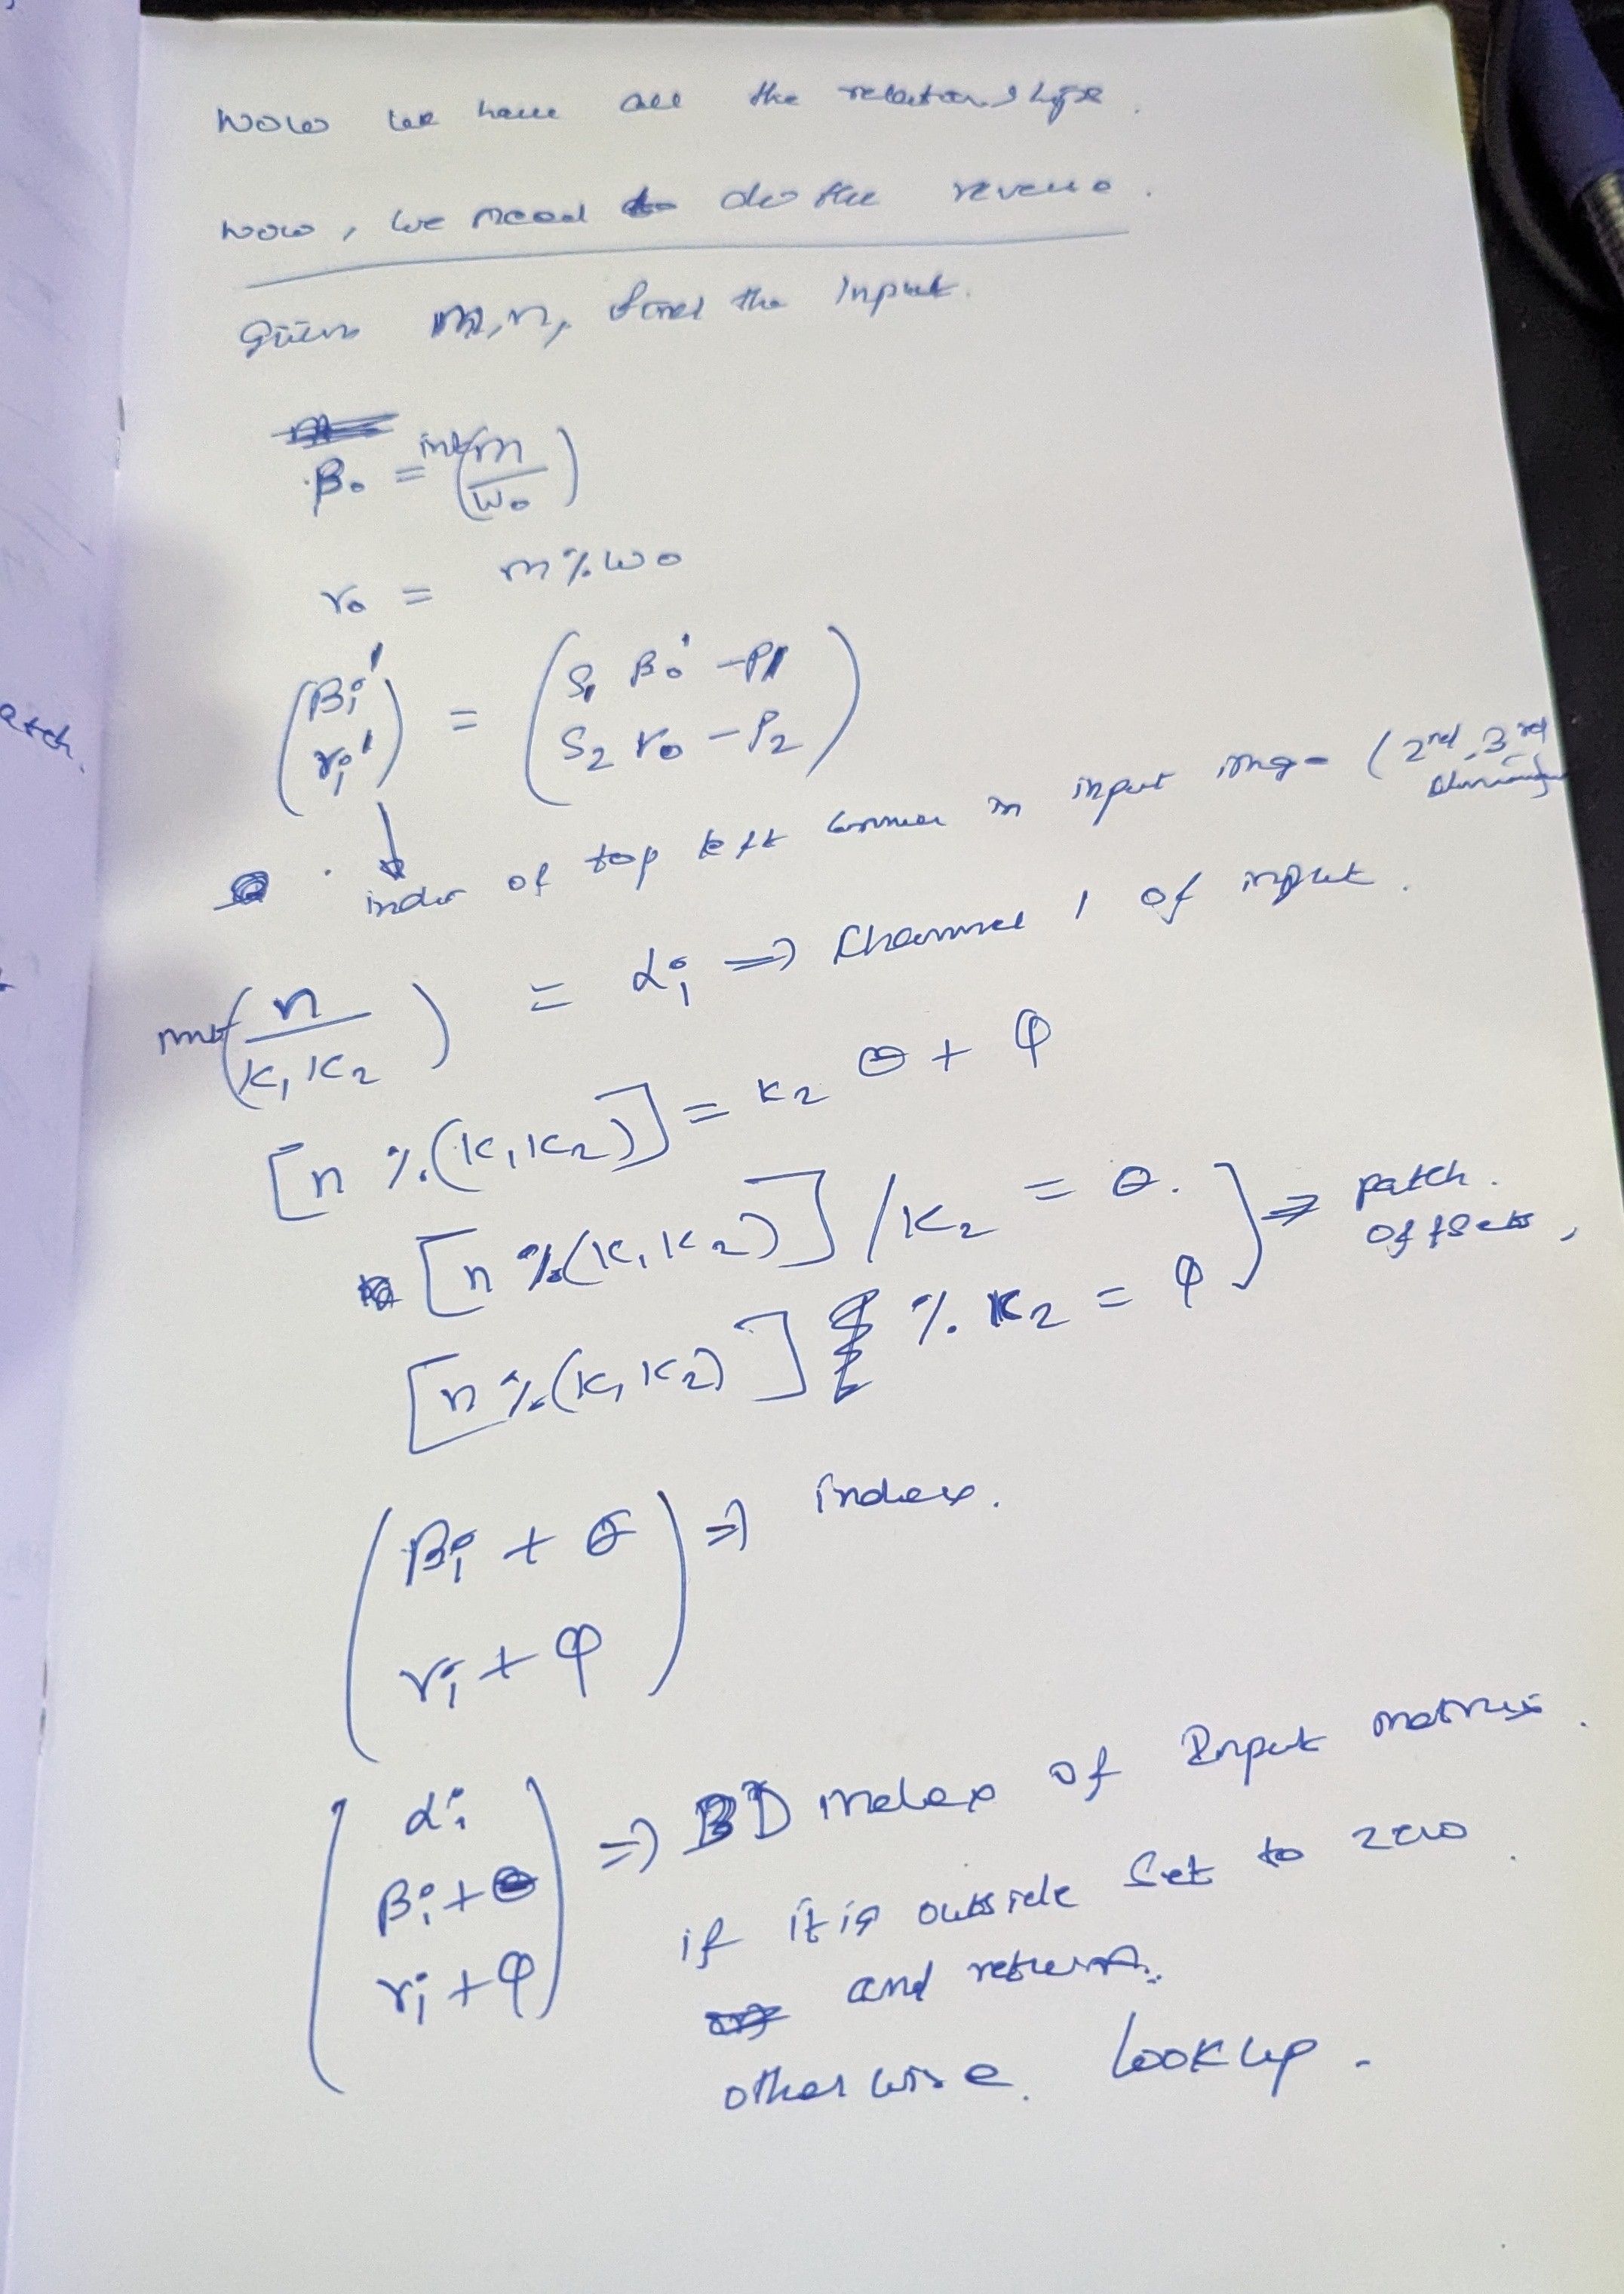 Now we have all the relationships.
Now, we need to do the reverse.
Given m,n, find the input.
β₀ = int(m/W₀)
γ₀ = m % W₀
(βᵢ' γᵢ') = (S₁ β₀' - P₁
S₂ γ₀ - P₂)
atch.
index of top left corner in input image (2nd, 3rd
int(n/K₁K₂) = αᵢ ⇒ Channel 1 of input.
[n % (K₁K₂)] = K₂ θ + φ
[n % (K₁K₂)] / K₂ = θ. } ⇒ patch.
offsets,
[n % (K₁K₂)] % K₂ = φ
(βᵢ + θ
γᵢ + φ) ⇒ index.
(αᵢ
βᵢ + θ
γᵢ + φ) ⇒ 3D index of Input matrix.
if it is outside Set to zero.
and return.
otherwise. Lookup.